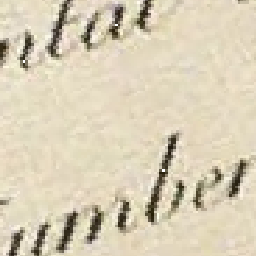 ntal
umber